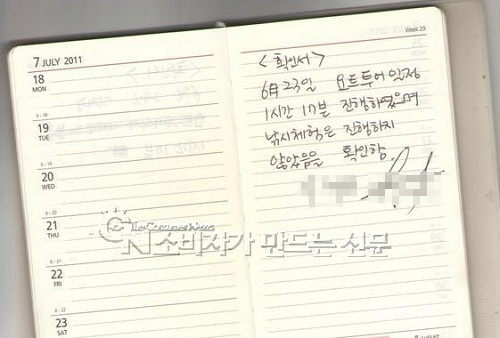 7 JULY 2011
18
MON
19
TUE
20
WED
21
THU
22
FRI
23
SAT
Week 29
<확인서>
6月 23일 요트투어 일정
1시간 17분 진행하였으며
낚시체험은 진행하지
않았음을 확인함.
The Consumers
소비자가 만드는 신문
8 AUGUST